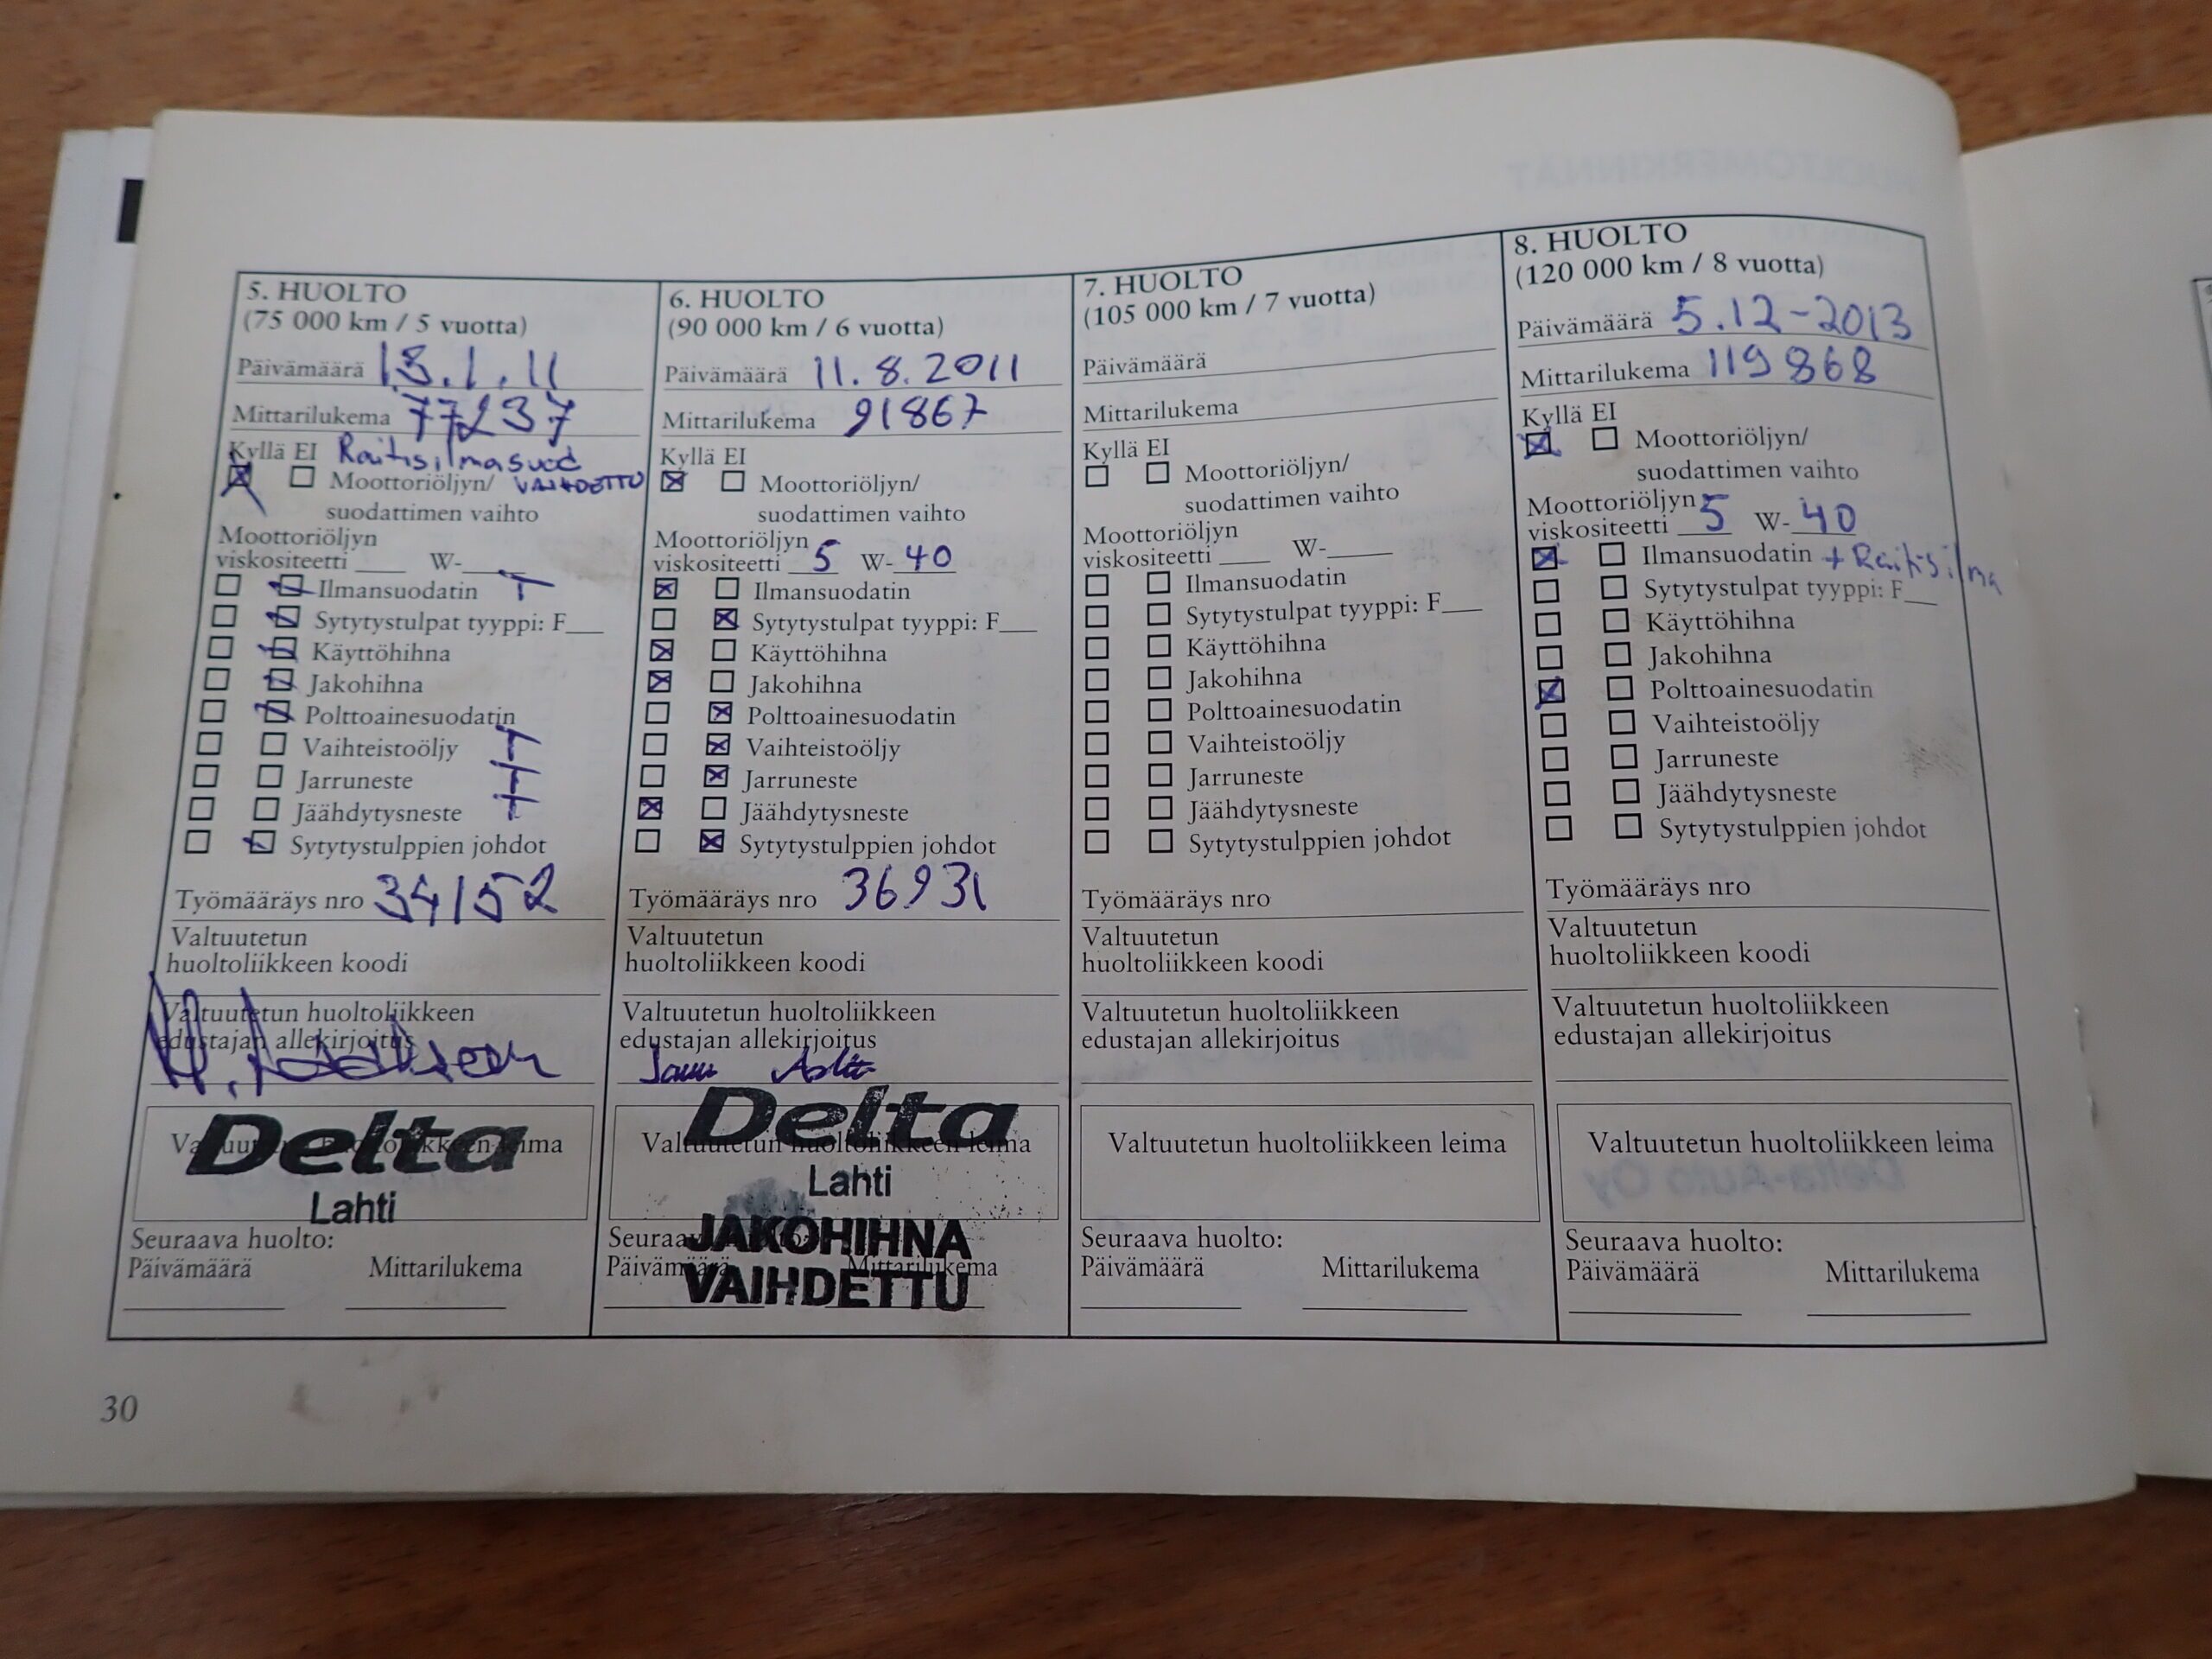 5. HUOLTO
(75 000 km / 5 vuotta)
Päivämäärä 13.1.11
Mittarilukema 77237
Kyllä EI Raitisilmasuod
Moottoriöljyn/ VAIHDETTU
suodattimen vaihto
Moottoriöljyn
viskositeetti ____ W-____
Ilmansuodatin T
Sytytystulpat tyyppi: F___
Käyttöhihna
Jakohihna
Polttoainesuodatin
Vaihteistoöljy T
Jarruneste T
Jäähdytysneste T
Sytytystulppien johdot
Työmääräys nro 34152
Valtuutetun
huoltoliikkeen koodi
Valtuutetun huoltoliikkeen
edustajan allekirjoitus
Valtuutetun huoltoliikkeen leima
Delta
Lahti
Seuraava huolto:
Päivämäärä Mittarilukema
6. HUOLTO
(90 000 km / 6 vuotta)
Päivämäärä 11.8.2011
Mittarilukema 91867
Kyllä EI
Moottoriöljyn/
suodattimen vaihto
Moottoriöljyn
viskositeetti 5 W-40
Ilmansuodatin
Sytytystulpat tyyppi: F___
Käyttöhihna
Jakohihna
Polttoainesuodatin
Vaihteistoöljy
Jarruneste
Jäähdytysneste
Sytytystulppien johdot
Työmääräys nro 36931
Valtuutetun
huoltoliikkeen koodi
Valtuutetun huoltoliikkeen
edustajan allekirjoitus
Valtuutetun huoltoliikkeen leima
Delta
Lahti
JAKOHIHNA
VAIHDETTU
Seuraava huolto:
Päivämäärä Mittarilukema
7. HUOLTO
(105 000 km / 7 vuotta)
Päivämäärä
Mittarilukema
Kyllä EI
Moottoriöljyn/
suodattimen vaihto
Moottoriöljyn
viskositeetti ____ W-____
Ilmansuodatin
Sytytystulpat tyyppi: F___
Käyttöhihna
Jakohihna
Polttoainesuodatin
Vaihteistoöljy
Jarruneste
Jäähdytysneste
Sytytystulppien johdot
Työmääräys nro
Valtuutetun
huoltoliikkeen koodi
Valtuutetun huoltoliikkeen
edustajan allekirjoitus
Valtuutetun huoltoliikkeen leima
Seuraava huolto:
Päivämäärä Mittarilukema
8. HUOLTO
(120 000 km / 8 vuotta)
Päivämäärä 5.12-2013
Mittarilukema 119868
Kyllä EI
Moottoriöljyn/
suodattimen vaihto
Moottoriöljyn
viskositeetti 5 W-40
Ilmansuodatin + Raitisilma
Sytytystulpat tyyppi: F___
Käyttöhihna
Jakohihna
Polttoainesuodatin
Vaihteistoöljy
Jarruneste
Jäähdytysneste
Sytytystulppien johdot
Työmääräys nro
Valtuutetun
huoltoliikkeen koodi
Valtuutetun huoltoliikkeen
edustajan allekirjoitus
Valtuutetun huoltoliikkeen leima
Seuraava huolto:
Päivämäärä Mittarilukema
30